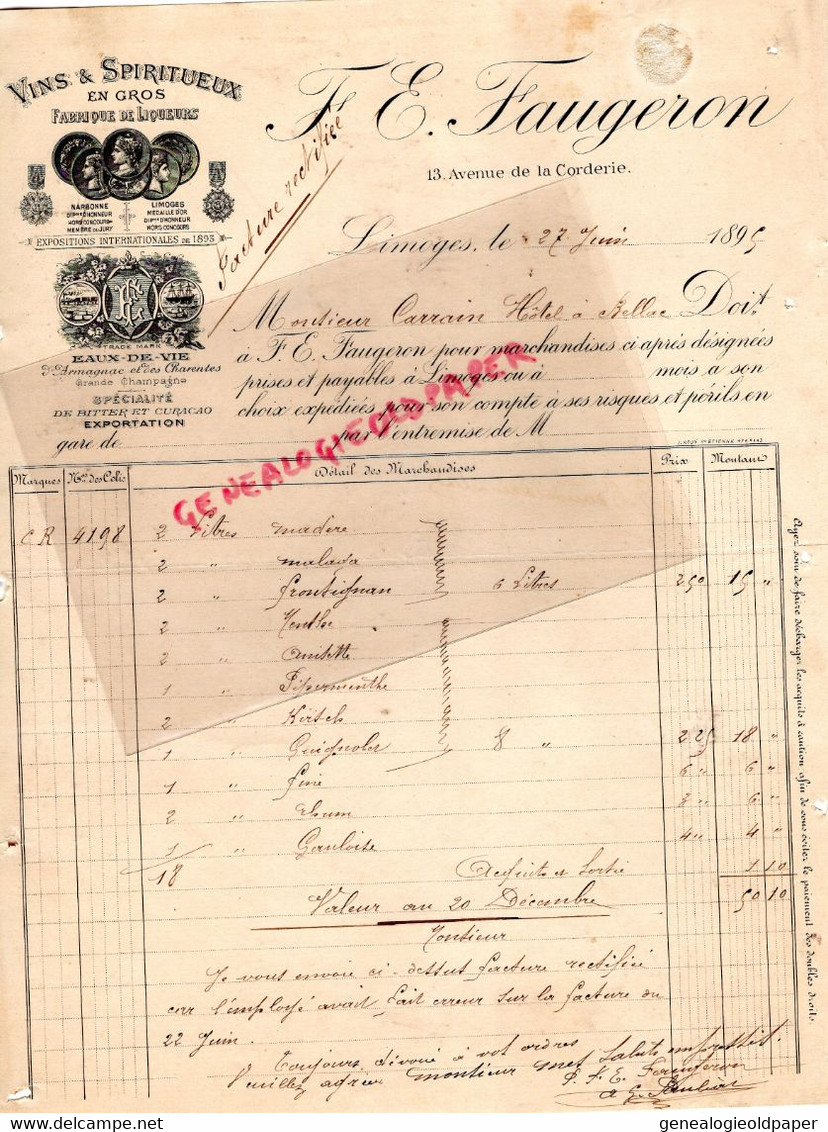 VINS & SPIRITUEUX
EN GROS
FABRIQUE DE LIQUEURS
NARBONNE
DIPme D'HONNEUR
HORS CONCOURS
MEMBRE DU JURY
LIMOGES
MEDAILLE D'OR
DIPme D'HONNEUR
HORS CONCOURS
EXPOSITIONS INTERNATIONALES DE 1893
TRADE MARK
EAUX-DE-VIE
D'Armagnac et des Charentes
Grande Champagne
SPÉCIALITÉ
DE BITTER ET CURACAO
EXPORTATION
F. E. Faugeron
13. Avenue de la Corderie.
Facture rectifiée
Limoges, le 27 Juin 1895
Monsieur Carrain Hôtel à Bellac Doit
à F. E. Faugeron pour marchandises ci après désignées
prises et payables à Limoges ou à mois a son
choix expédiées pour son compte à ses risques et périls en
gare de par l'entremise de M
Marques Nos des Colis Détail des Marchandises Prix Montant
CR 4198 2 Litres madère
2 " malaga
2 " frontignan 6 Litres 2 50 15 "
2 " Menthe
2 " Anisette
1 " Pipermenthe
2 " Kirsch
1 " Guignolet 8 " 2 25 18 "
1 " fine 6 " 6 "
2 " Rhum 3 " 6 "
1 " Gauloise 4 " 4 "
18 Acquits et Sortie 1 10
Valeur au 20 Décembre 50 10
Monsieur
Je vous envoie ci-dessus facture rectifiée
car l'employé avait fait erreur sur la facture du
22 Juin.
Toujours dévoué à vos ordres
Veuillez agréer monsieur mes saluts empressés.
P. F. E. Faugeron
Ayez soin de faire décharger les acquits à caution afin de vous éviter le paiement des doubles droits
GENEALOGIEOLDPAPER
genealogieoldpaper
www.delcampe.net
genealogieoldpaper